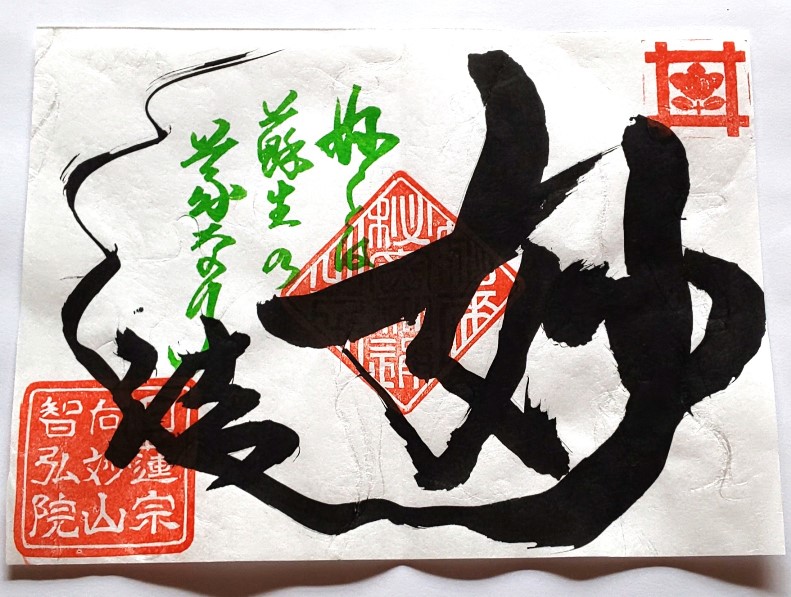 妙
妙とは
蘇生の
義なり
日蓮宗
向妙山
智弘院